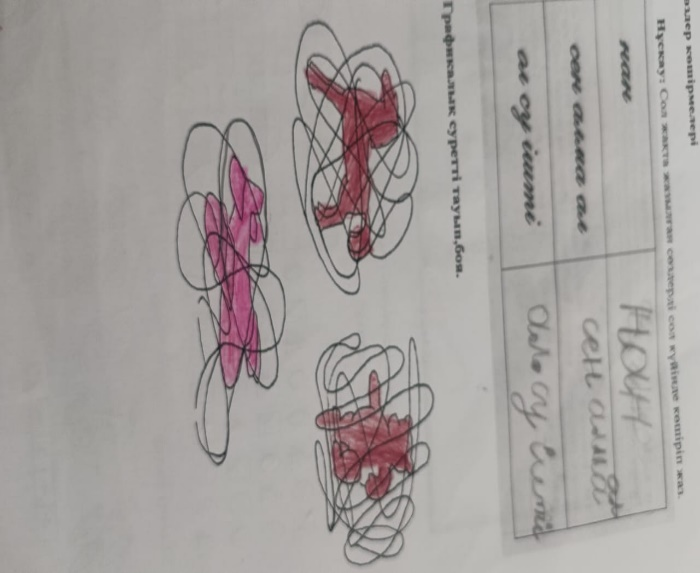 өзлер көшірмелері
Нұсқау: Сол жақта жазылған сөздерді сол күйінде көшіріп жаз.
нан
Нан
сен алма ал
сен алма ал
ол су ішті
Графикалық суретті тауып,боя.